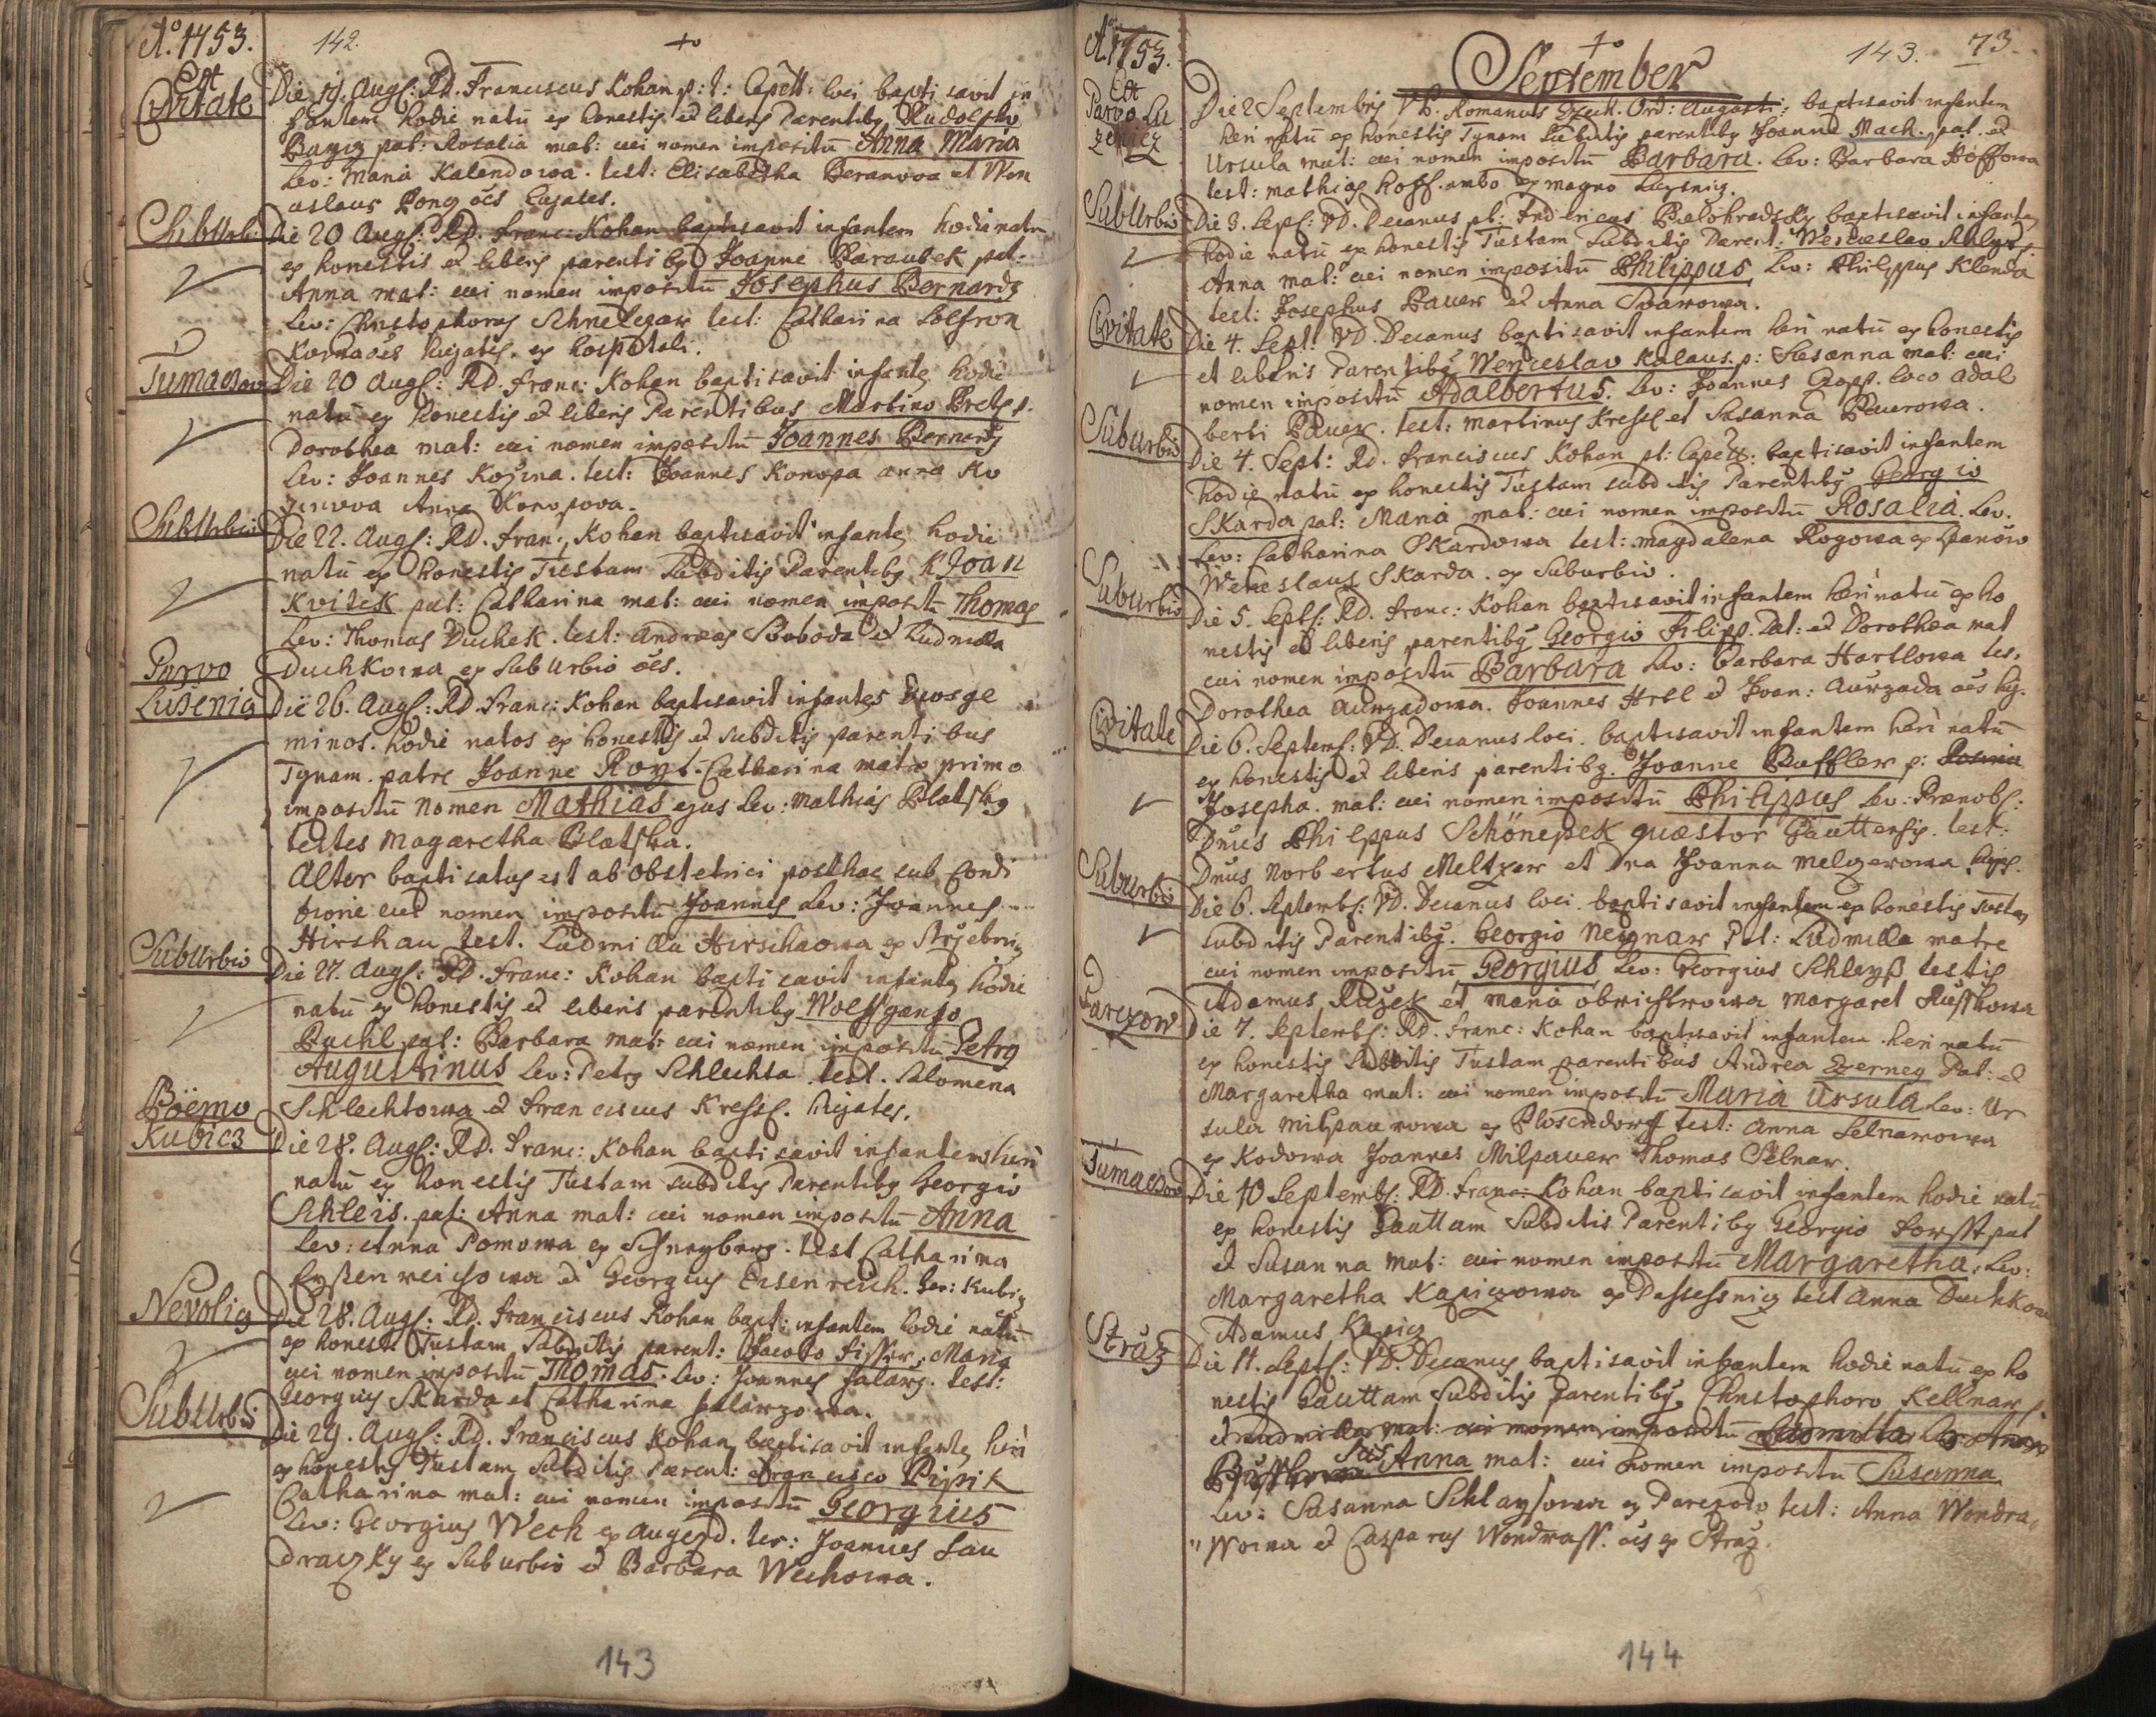 Aō. 1753.
142.
Ex
Civitate
Die 19. Augs: RD. Franciscus Kohan p: t: Capell: loci baptisavit in
fantem hodie natū ex honestis et liberis Parentibg Rudolpho
pat: Rosalia mat: cui nomen impositū Anna Maria
Lev: Maria Kalendowa. test: Elisabetha Beranova et Wen
ceslaus oēs hujates.
SubUrbi:
Die 20 Augs: RD. Franc: Kohan baptisavit infantem hodie natū
ex honestis et liberis parentibg Joanne Baraubek pat:
Anna mat: cui nomen impositū Josephus Bernardg
Lev: Christophorus Schnelzar test: Catharina
oēs hujates. ex hospitali.
Tumaczow
Die 20 Augs: RD. Franc: Kohan baptisavit infantē hodie
natū ex honestis et liberis Parentibus Martino
Dorothea mat: cui nomen impositū Joannes Bernardg
Lev: Joannes Kozina. test: Joannes Konopa anna Ko
zinova Anna Konopova.
SubUrbio
Die 22. Augs: RD. Franc: Kohan baptisavit infantē hodie
natū ex honestis Tustam Subditis Parentibg Joan
Kvitek pat: Catharina mat: cui nomen impositū Thomas
Lev: Thomas Duchek. test: Andreas Svoboda et Ludmilla
Duchkowa ex SubUrbio oēs.
Parvo
Luženig
Die 26. Augs: RD. Franc: Kohan baptisavit infantes duos ge
minos. hodie natos ex honestis et subditis parentibus
Tynam. patre Joanne Royt. Catharina matre, primo
impositū nomen Mathias ejus Lev: Mathias
testes Magaretha
Alter baptisatus est ab obstetrici posthac sub Condi
tione cui nomen impositū Joannes Lev: Joannes
Hirshau test. Ludmilla Hirschaowa ex
SubUrbio
Die 27. Augs: RD. Franc: Kohan baptisavit infantē hodie
natū ex honestis et liberis parentibg Wolfgango
Puchl pat: Barbara mat: cui nomen impositū Petrg
Augustinus Lev: Petrg Schlechta test. Salomena
Schlechtowa et Franciscus Kressl. hujates.
Böemo
Kubicz
Die 28. Augs: RD. Franc: Kohan baptisavit infantem heri
natū ex honestis Tustam subditis Parentibg Georgio
Schleis. pat: Anna mat: cui nomen impositū Anna
Lev: Anna Pomowa ex test Catharina
et Georgius Eisenreich.
Nevolig
Die 28. Augs: RD. Franciscus Kohan bapt: infantem hodie natū
ex honest: Tustam Subditis parent: Jacobo Fisser, Maria
cui nomen impositū Thomas. Lev: Joannes test:
Georgius Skarda et Catharina
SubUrbio
Die 29. Augs: RD. Franciscus Kohan baptisavit infantē heri
ex honestis Tustam Subditis Parent: Francisco Pipik
Catharina mat: cui nomen impositū Georgius
Lev: Georgius Wech ex Augezd. tes: Joannes Lau
draczky ex Suburbio et Barbara Wechowa.
143
Aō. 1753.
143. 73.
September
Ex
Parvo Lu
zenicz
Die 2 Septembris Romanus Ord: Augusti: baptisavit infantem
heri natū ex honestis Tynam Subditis parentibg Joanne Mach. pat. et
Ursula mat: cui nomen impositū Barbara. Lev: Barbara Hoffowa
test: mathias Hoff. ambo ex magno
SubUrbio
Die 3. Sept: VD. Decanus pl: Fridericus Bielohradsky baptisavit infantē
hodie natū ex honestis Tustam Subditis Parent: Wenceslao
Anna mat: cui nomen impositū Philippus Lev: Philippus Klenda
test: Josephus Bauer et Anna
Civitate
Die 4. Sept: VD. Decanus baptisavit infantem heri natū ex honestis
et liberis Parentibg Wenceslao Kalaus. p: Susanna mat: cui
nomen impositū Adalbertus. Lev: Joannes loco Adal
berti Bauer. test: Martinus Kressl et Susanna Baurowa.
SubUrbio
Die 4. Sept: RD. Franciscus Kohan pt: Capell: baptisavit infantem
hodie natū ex honestis Tustam subditis Parentibg Georgio
Skarda pat: Maria mat: cui nomen impositū Rosalia. Lev.
Lev: Catharina Skardowa test: Magdalena Rogowa ex
Wenceslaus Skarda. ex Suburbio.
SubUrbio
Die 5. Septs: RD. Franc: Kohan baptisavit infantem heri natū ex ho
nestis et liberis parentibg Georgio Filipp. Pat: et Dorothea mat
cui nomen impositū Barbara Lev: Barbara Hartlowa tes.
Dorothea Aungadowa. Joannes Hrtl et Joan: Aurzada oēs hg.
Civitate
Die 6. Septemb: VD. Decanus loci baptisavit infantem heri natū
ex honestis et liberis parentibg. Joanne Puffler p: Rosina
Josepha. mat: cui nomen impositū Philippus Lev: Prænobs:
Dnus Philppus Schönpek quæstor Gauttensis. test:
Dnus Norbertus Meltzer et Dna Joanna Melzerowa
Suburbio
Die 6. Septembs: VD. Decanus loci baptisavit infantem ex honestis Tustam
subditis Parentibg. Georgio Neyznar Pat: Ludmilla matre
cui nomen impositū Georgius. Lev: Georgius Schleyß testis
Adamus Ružek et Maria Margaret
Parezow
Die 7. Septembs: RD. Franc: Kohan baptisavit infantem heri natū
ex honestis Subditis Tustam parentibus Andrea Zerneg Pat: et
Margaretha mat: cui nomen impositū Maria Ursula Lev: Ur
sula Milpaurowa ex Plosendorff test: Anna Selnarowa
ex Kodowa Joannes Milpauer Thomas Selnar.
Tumaczow
Die 10 Septembs: RD. Franc: Kohan baptisavit infantem hodie natū
ex honestis Gauttam Subditis Parentibg Georgio Forsst pat
et Susanna mat: cui nomen impositū Margaretha. Lev:
Margaretha Kapiczowa ex test Anna Duchkow
Adamus Kapicz
Stráz
Die 11. Septs: VD. Decanus baptisavit infantem hodie natū ex ho
nestis Gauttam Subditis Parentibg. Christophoro Kellnar p.
et Ludmilla mat: cui nomen impositū Ludmilla Lev: Anna
Anna mat: cui nomen impositū Susanna
Lev: Susanna Schlaysowa ex Parezow test: Anna Wondra
wowa et Casparus Wondrass. oēs ex Stráz.
144